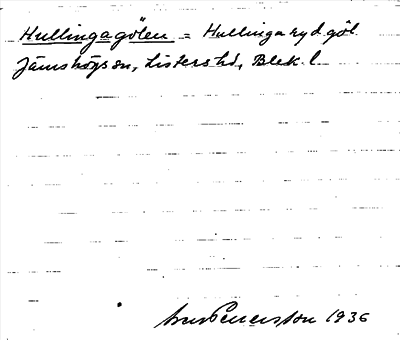 Hullingagölen = Hullingaryd göl.
Jämshögs sn, Listers hd, Blek. l.
1936